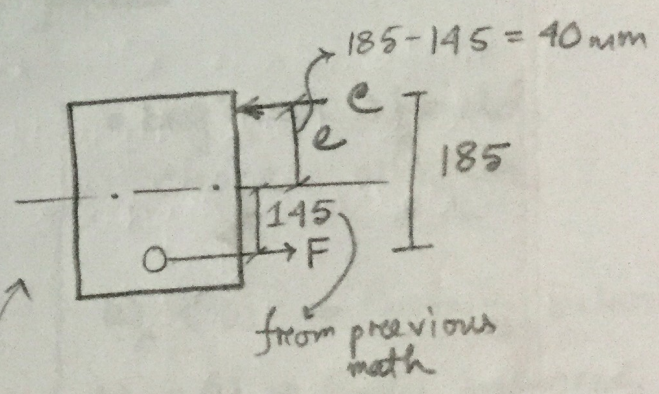 185-145 = 40 mm
C
e
185
145
F
from preevious
math